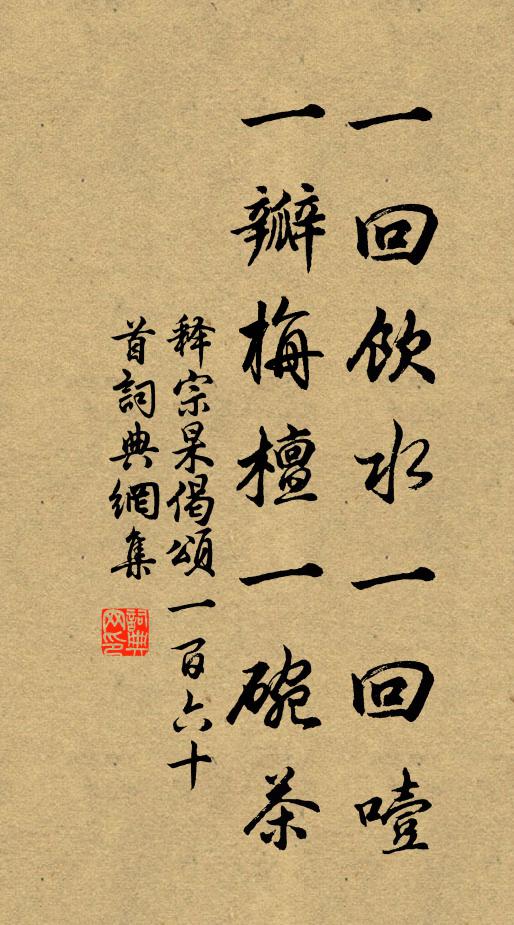 一回飲水一回噎
一瓣梅檀一碗茶
释宗杲偈頌一百六十
首詞典網集
詞典
网印